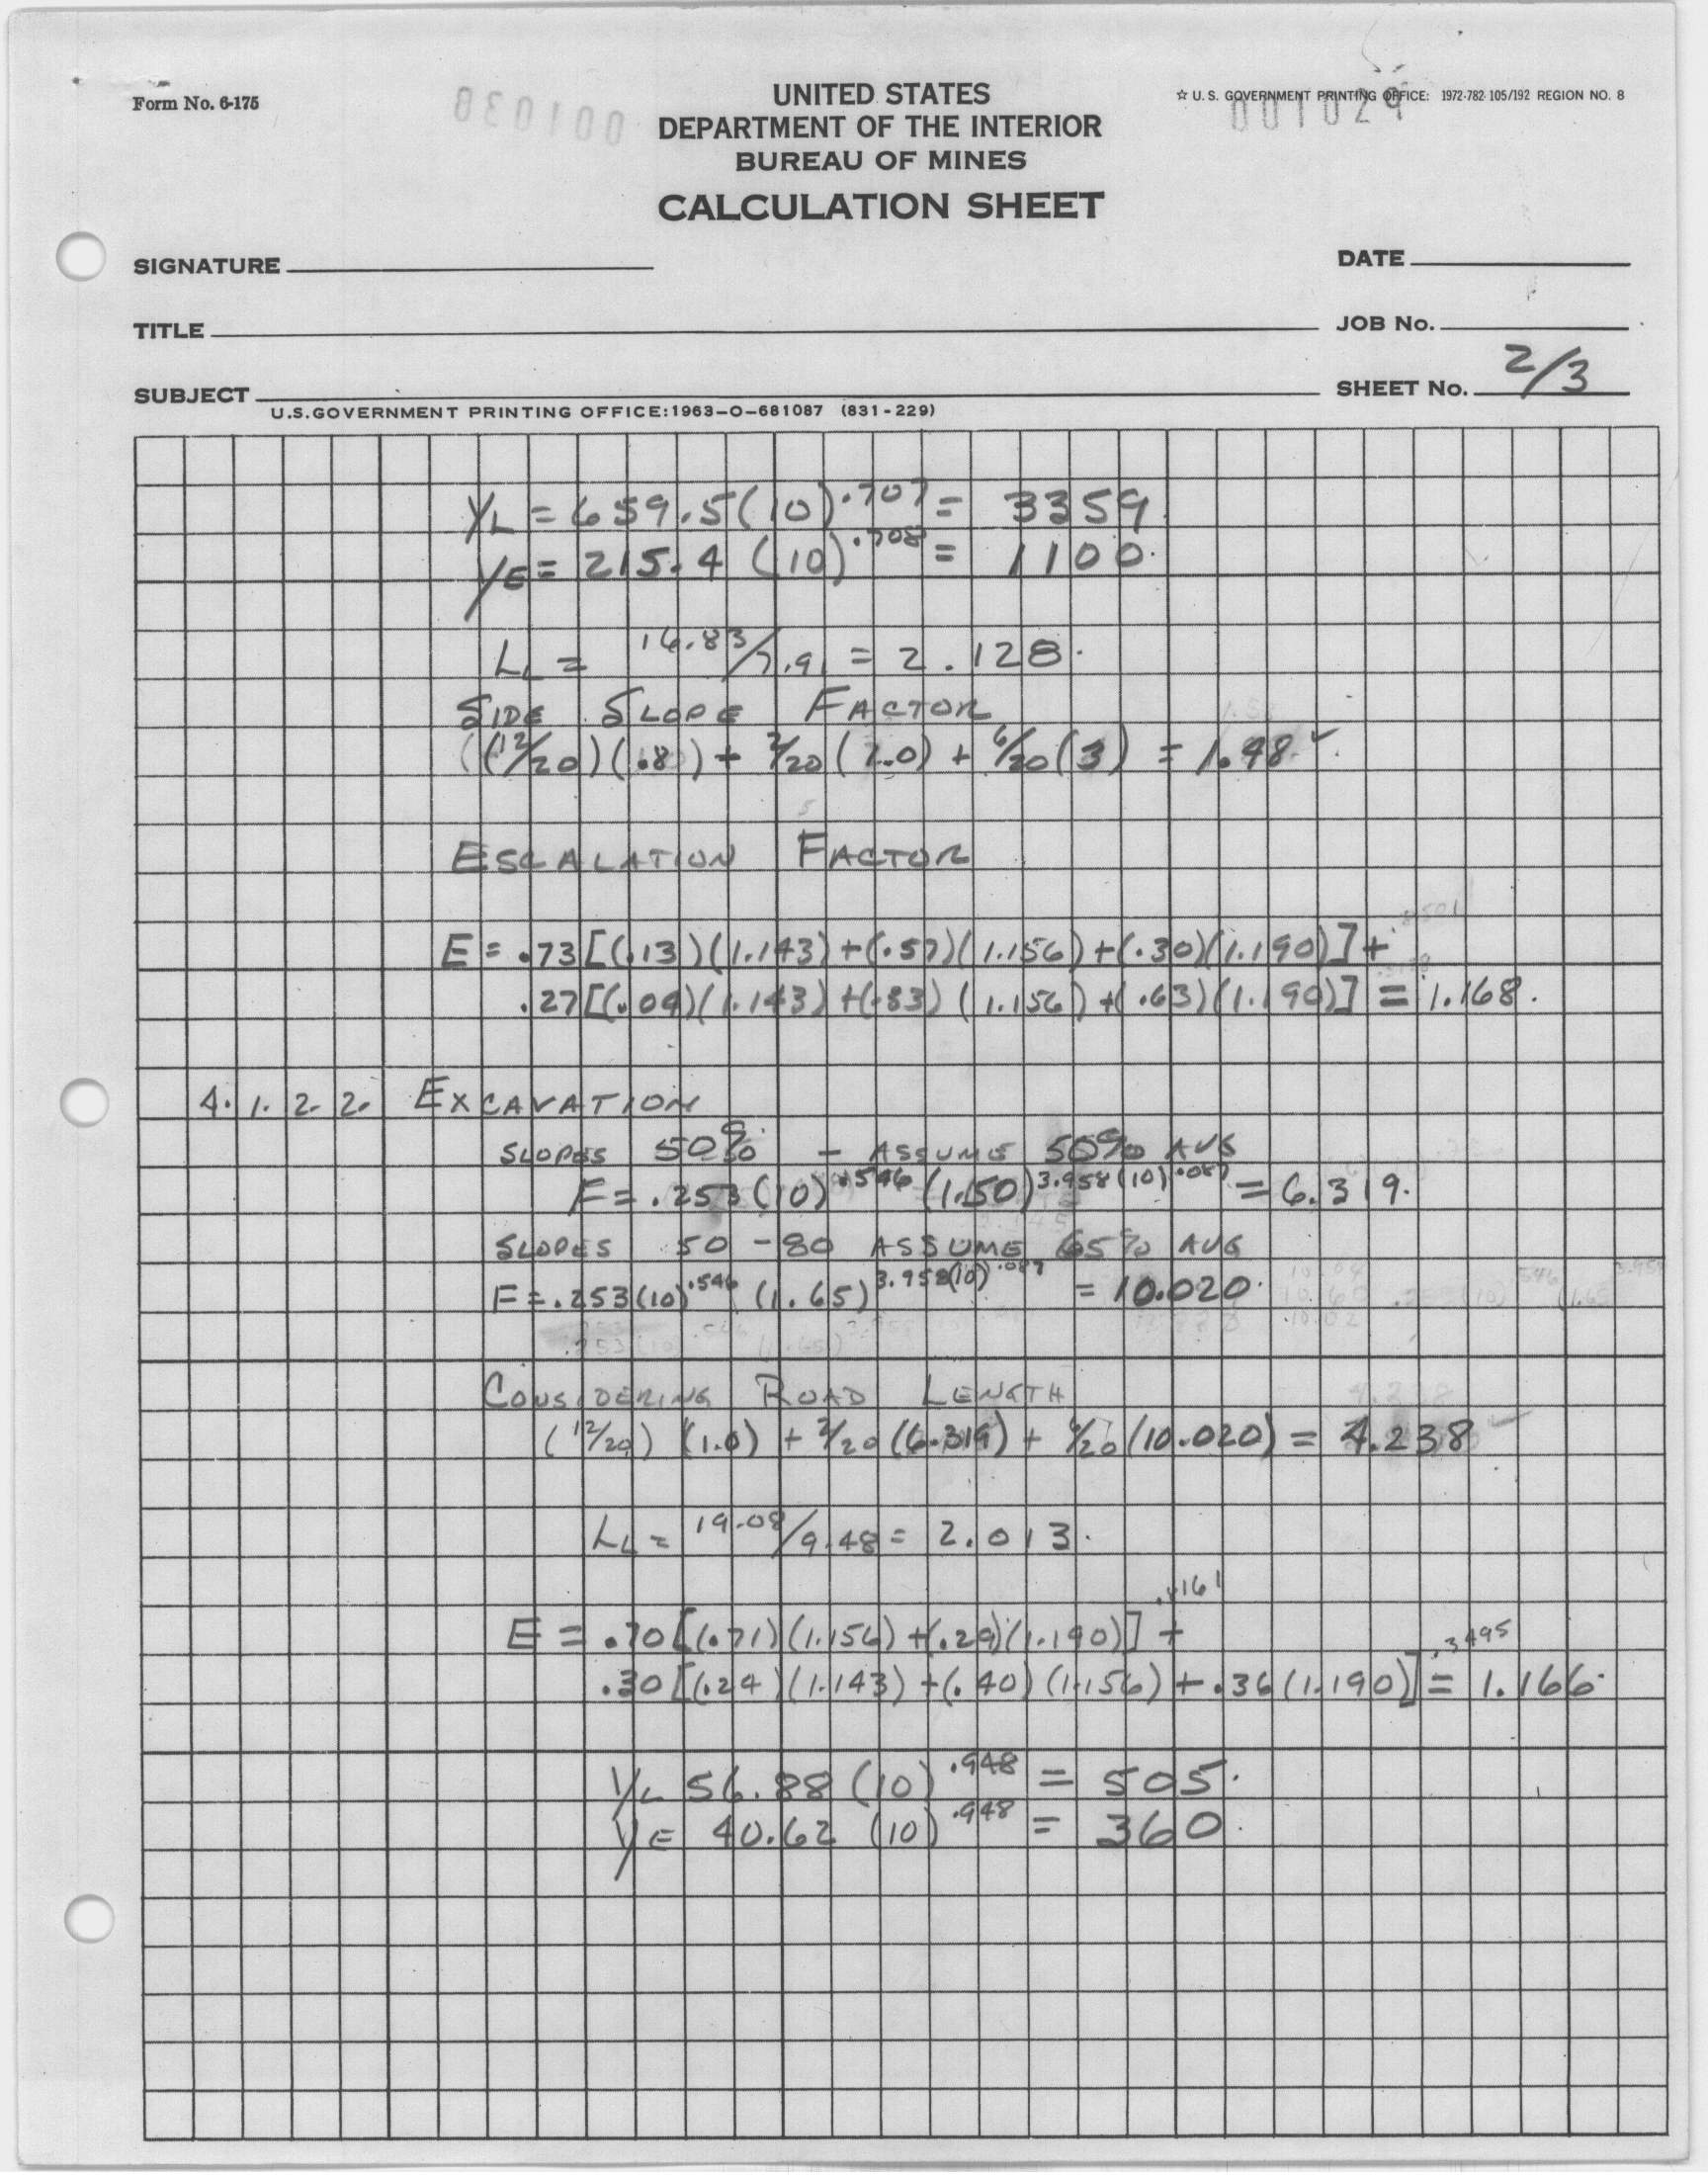 Form No. 6-175
001030
UNITED STATES
DEPARTMENT OF THE INTERIOR
BUREAU OF MINES
CALCULATION SHEET
☆ U. S. GOVERNMENT PRINTING OFFICE: 1972-782-105/192 REGION NO. 8
001029
SIGNATURE
DATE
TITLE
JOB No.
SUBJECT
SHEET No. 2/3
U.S.GOVERNMENT PRINTING OFFICE:1963-O-681087 (831-229)
YL = 659.5(10).707 = 3359
YE = 215.4 (10).708 = 1100.
LL = 16.83/7.91 = 2.128.
SIDE SLOPE FACTOR
((12/20)(.8) + 2/20 (1.0) + 6/20 (3) = 1.48 ✓
ESCALATION FACTOR
.8501
E = .73[(.13)(1.143) + (.57)(1.156) + (.30)(1.190)] +
.27[(.04)(1.143) + (.33)(1.156) + (.63)(1.190)] = 1.168.
4.1.2.2. EXCAVATION
SLOPES 50% - ASSUME 50% AVG
F = .253(10).546 (1.50)3.958(10).087 = 6.319.
SLOPES 50 - 80 ASSUME 65% AVG
F = .253(10).546 (1.65)3.958(10).087 = 10.020.
CONSIDERING ROAD LENGTH
(12/20) (1.0) + 2/20 (6.319) + 6/20 (10.020) = 4.238
LL = 19.08/9.48 = 2.013.
.8161
E = .70[(.71)(1.156) + (.29)(1.190)] +
.3495
.30[(.24)(1.143) + (.40)(1.156) + .36(1.190)] = 1.166.
YL 56.88 (10).948 = 505.
YE 40.62 (10).948 = 360.